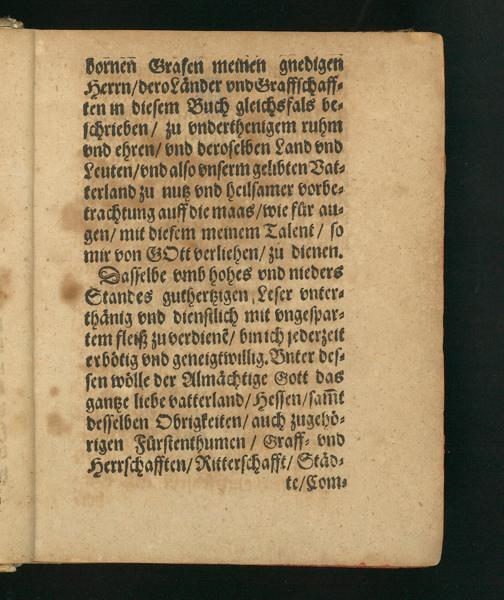 bornen̄ Grafen meinen gnedigen
Herrn/dero Länder vnd Graffschaff⸗
ten in diesem Buch gleichsfals be⸗
schrieben/ zu vnderthenigem ruhm
vnd ehren/ vnd deroselben Land vnd
Leuten/vnd also vnserm gelibten Vat⸗
terland zu nutz vnd heilsamer vorbe⸗
trachtung auff die maas/wie für au⸗
gen/ mit diesem meinem Talent/ so
mir von GOtt verliehen/ zu dienen.
Dasselbe vmb hohes vnd nieders
Standes guthertzigen Leser vnter⸗
thänig vnd dienstlich mit vngespar⸗
tem fleiß zu verdienē/ bin ich jederzeit
erbötig vnd geneigtwillig. Vnter des⸗
sen wölle der Almächtige Gott das
gantze liebe vatterland/ Hessen/sam̄t
desselben Obrigkeiten/ auch zugehö⸗
rigen Fürstenthumen / Graff⸗ vnd
Herrschafften/ Ritterschafft/ Städ⸗
te/Com⸗